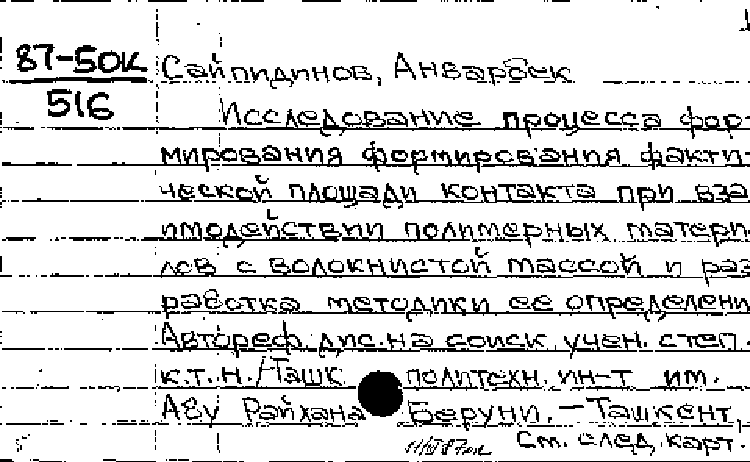 87-50к
516
Сайпидинов, Анварбек
Исследование процесса фор-
мирования формирования факти-
ческой площади контакта при вза
имодействии полимерных матери
лов с волокнистой массой и раз
работка методики ее определени
Автореф. дис. на соиск. учен. степ.
к.т.н. / Ташк политехн. ин-т им.
Абу Райхана Беруни. - Ташкент,
См. след. карт.